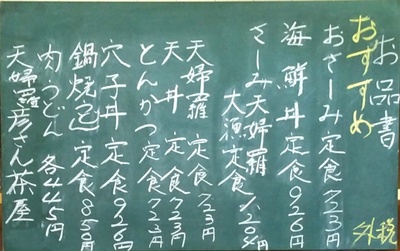 お品書
おすすめ
おさしみ定食 723円
海鮮丼定食 926円
さしみ天婦羅
大漁定食 1,204円
天婦羅定食 723円
天丼定食 723円
とんかつ定食 723円
穴子丼定食 926円
鍋焼定食 833円
肉うどん 各445円
天婦羅彦さん茶屋
外税